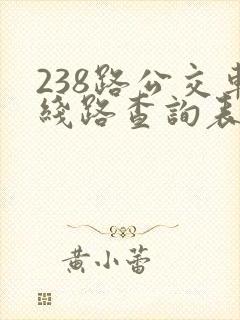 238路公交車
綫路查詢表
黄小蕾